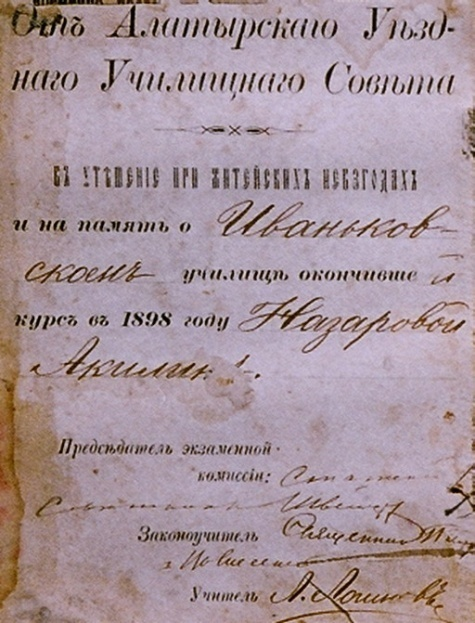 Отъ Алатырскаго Уѣзд-
наго Училищнаго Совѣта
ВЪ УТѢШЕНІЕ ПРИ ЖИТЕЙСКИХЪ НЕВЗГОДАХЪ
и на память о Иваньков-
скомъ училищѣ окончивше й
курсъ въ 1898 году Назаровой
Акилин
Предсѣдатель экзаменной
коммиссіи:
Законоучитель Священник
Учитель А. Логиновъ